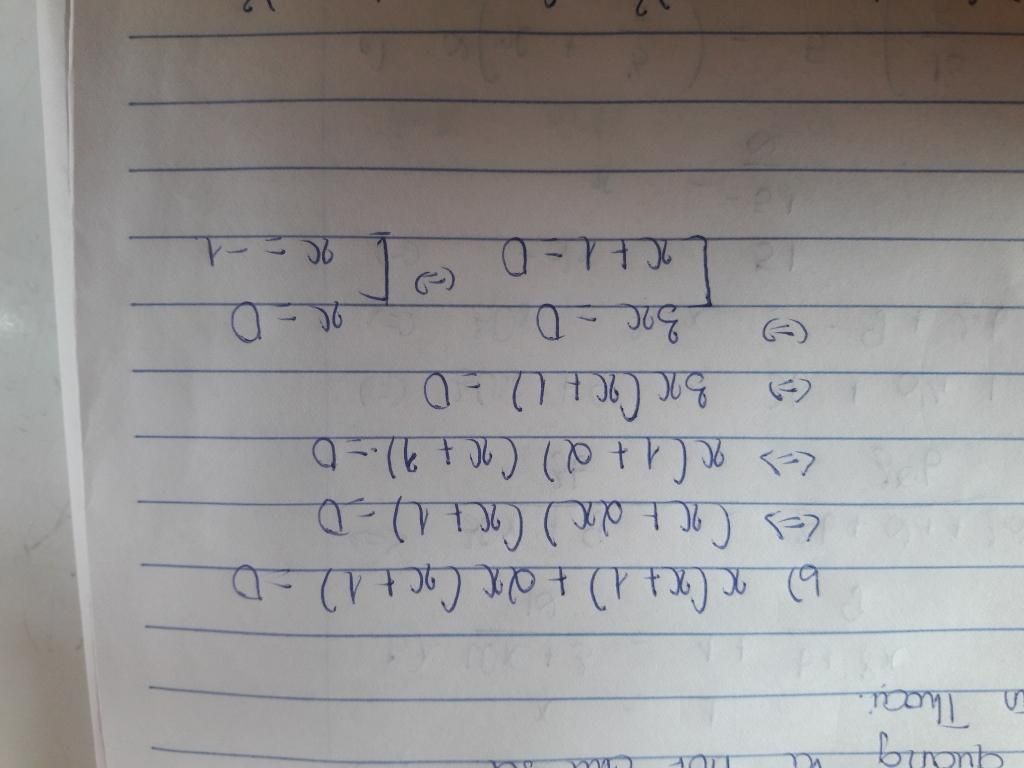 quang
Thoại.
b) x(x+1) + 2x(x+1) = 0
<=> (x + 2x) (x+1) = 0
<=> x(1+2) (x+1) = 0
<=> 3x(x+1) = 0
<=> [ 3x = 0 <=> [ x = 0
x + 1 = 0 x = -1